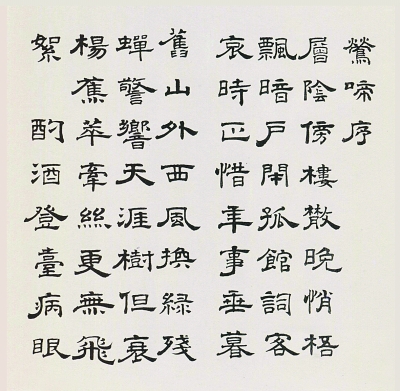 鶯啼序
層陰傍樓散晚悄梧
飄暗戶閉孤館詞客
哀時正惜年事垂暮
舊山外西風換綠殘
蟬警響天涯樹但衰
楊蕉萃牽絲更無飛
絮 酌酒登臺病眼